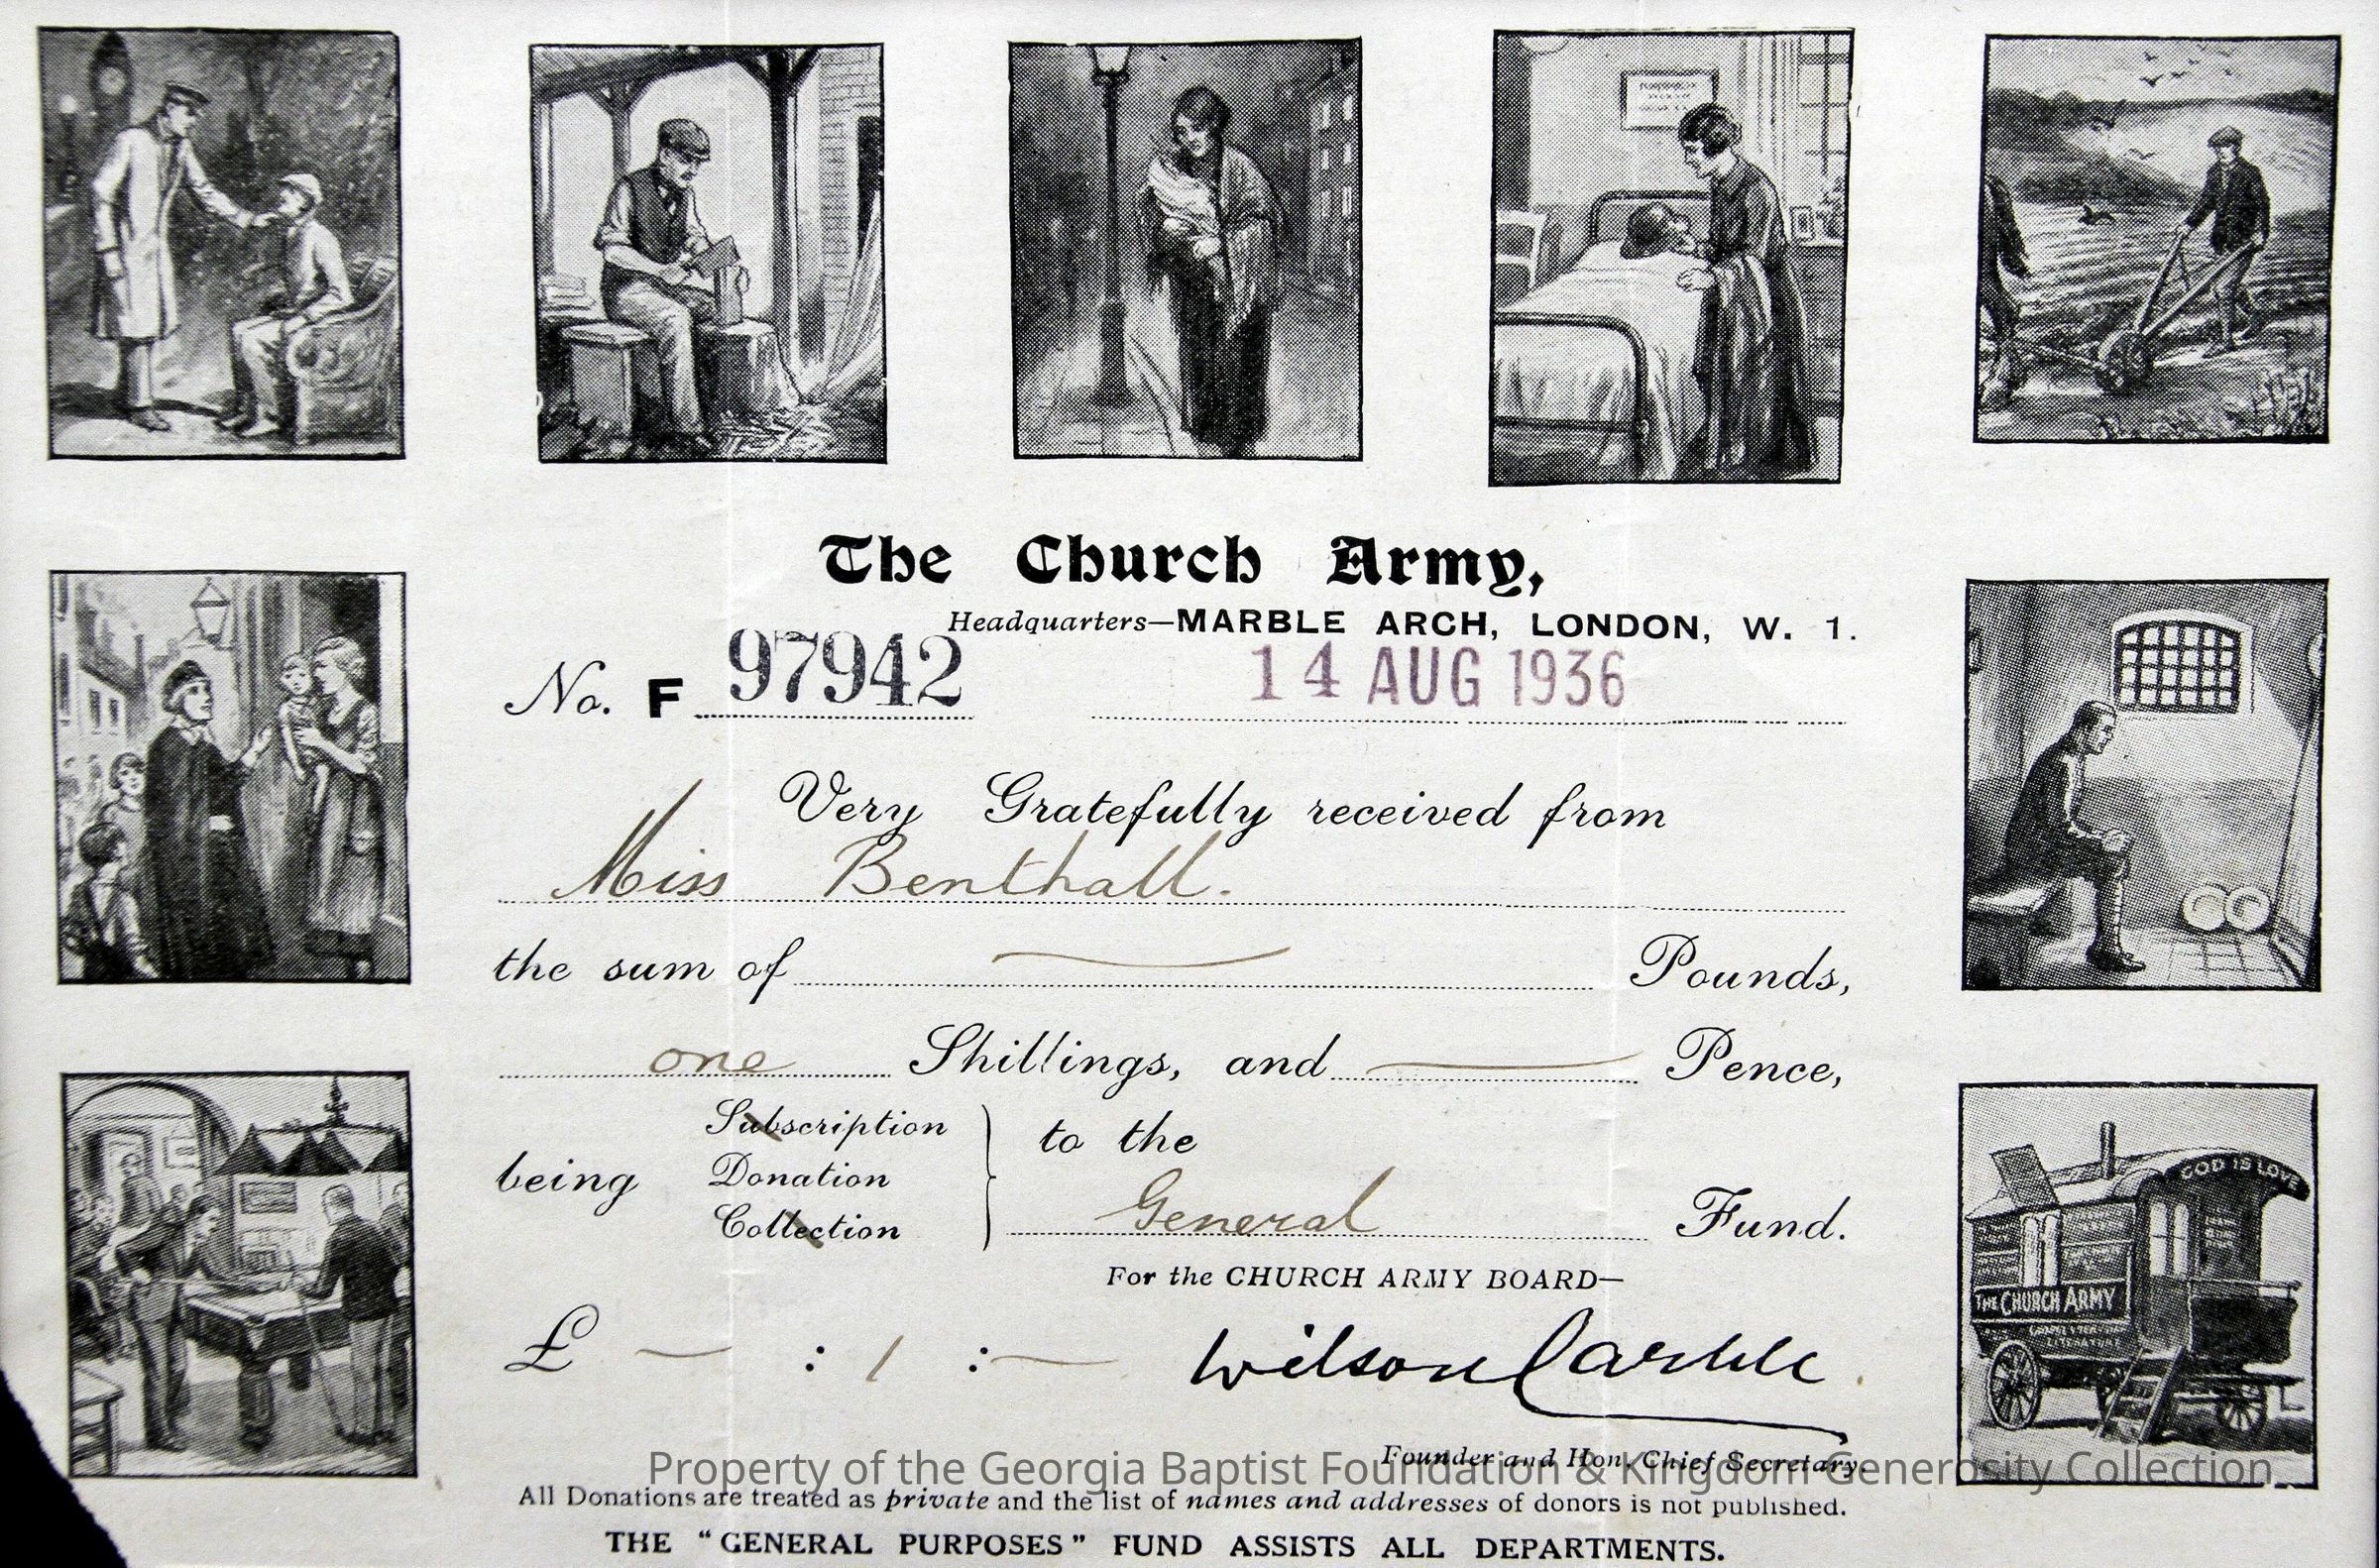 The Church Army,
Headquarters—MARBLE ARCH, LONDON, W. 1.
No. F 97942 14 AUG 1936
Very Gratefully received from
Miss Benthall.
the sum of — Pounds,
one Shillings, and — Pence,
being Subscription
Donation
Collection
to the
General Fund.
For the CHURCH ARMY BOARD—
£ — : 1 : —
Wilson Carlile
Founder and Hon. Chief Secretary.
Property of the Georgia Baptist Foundation & Kingdom Generosity Collection
All Donations are treated as private and the list of names and addresses of donors is not published.
THE "GENERAL PURPOSES" FUND ASSISTS ALL DEPARTMENTS.
GOD IS LOVE
THE CHURCH ARMY